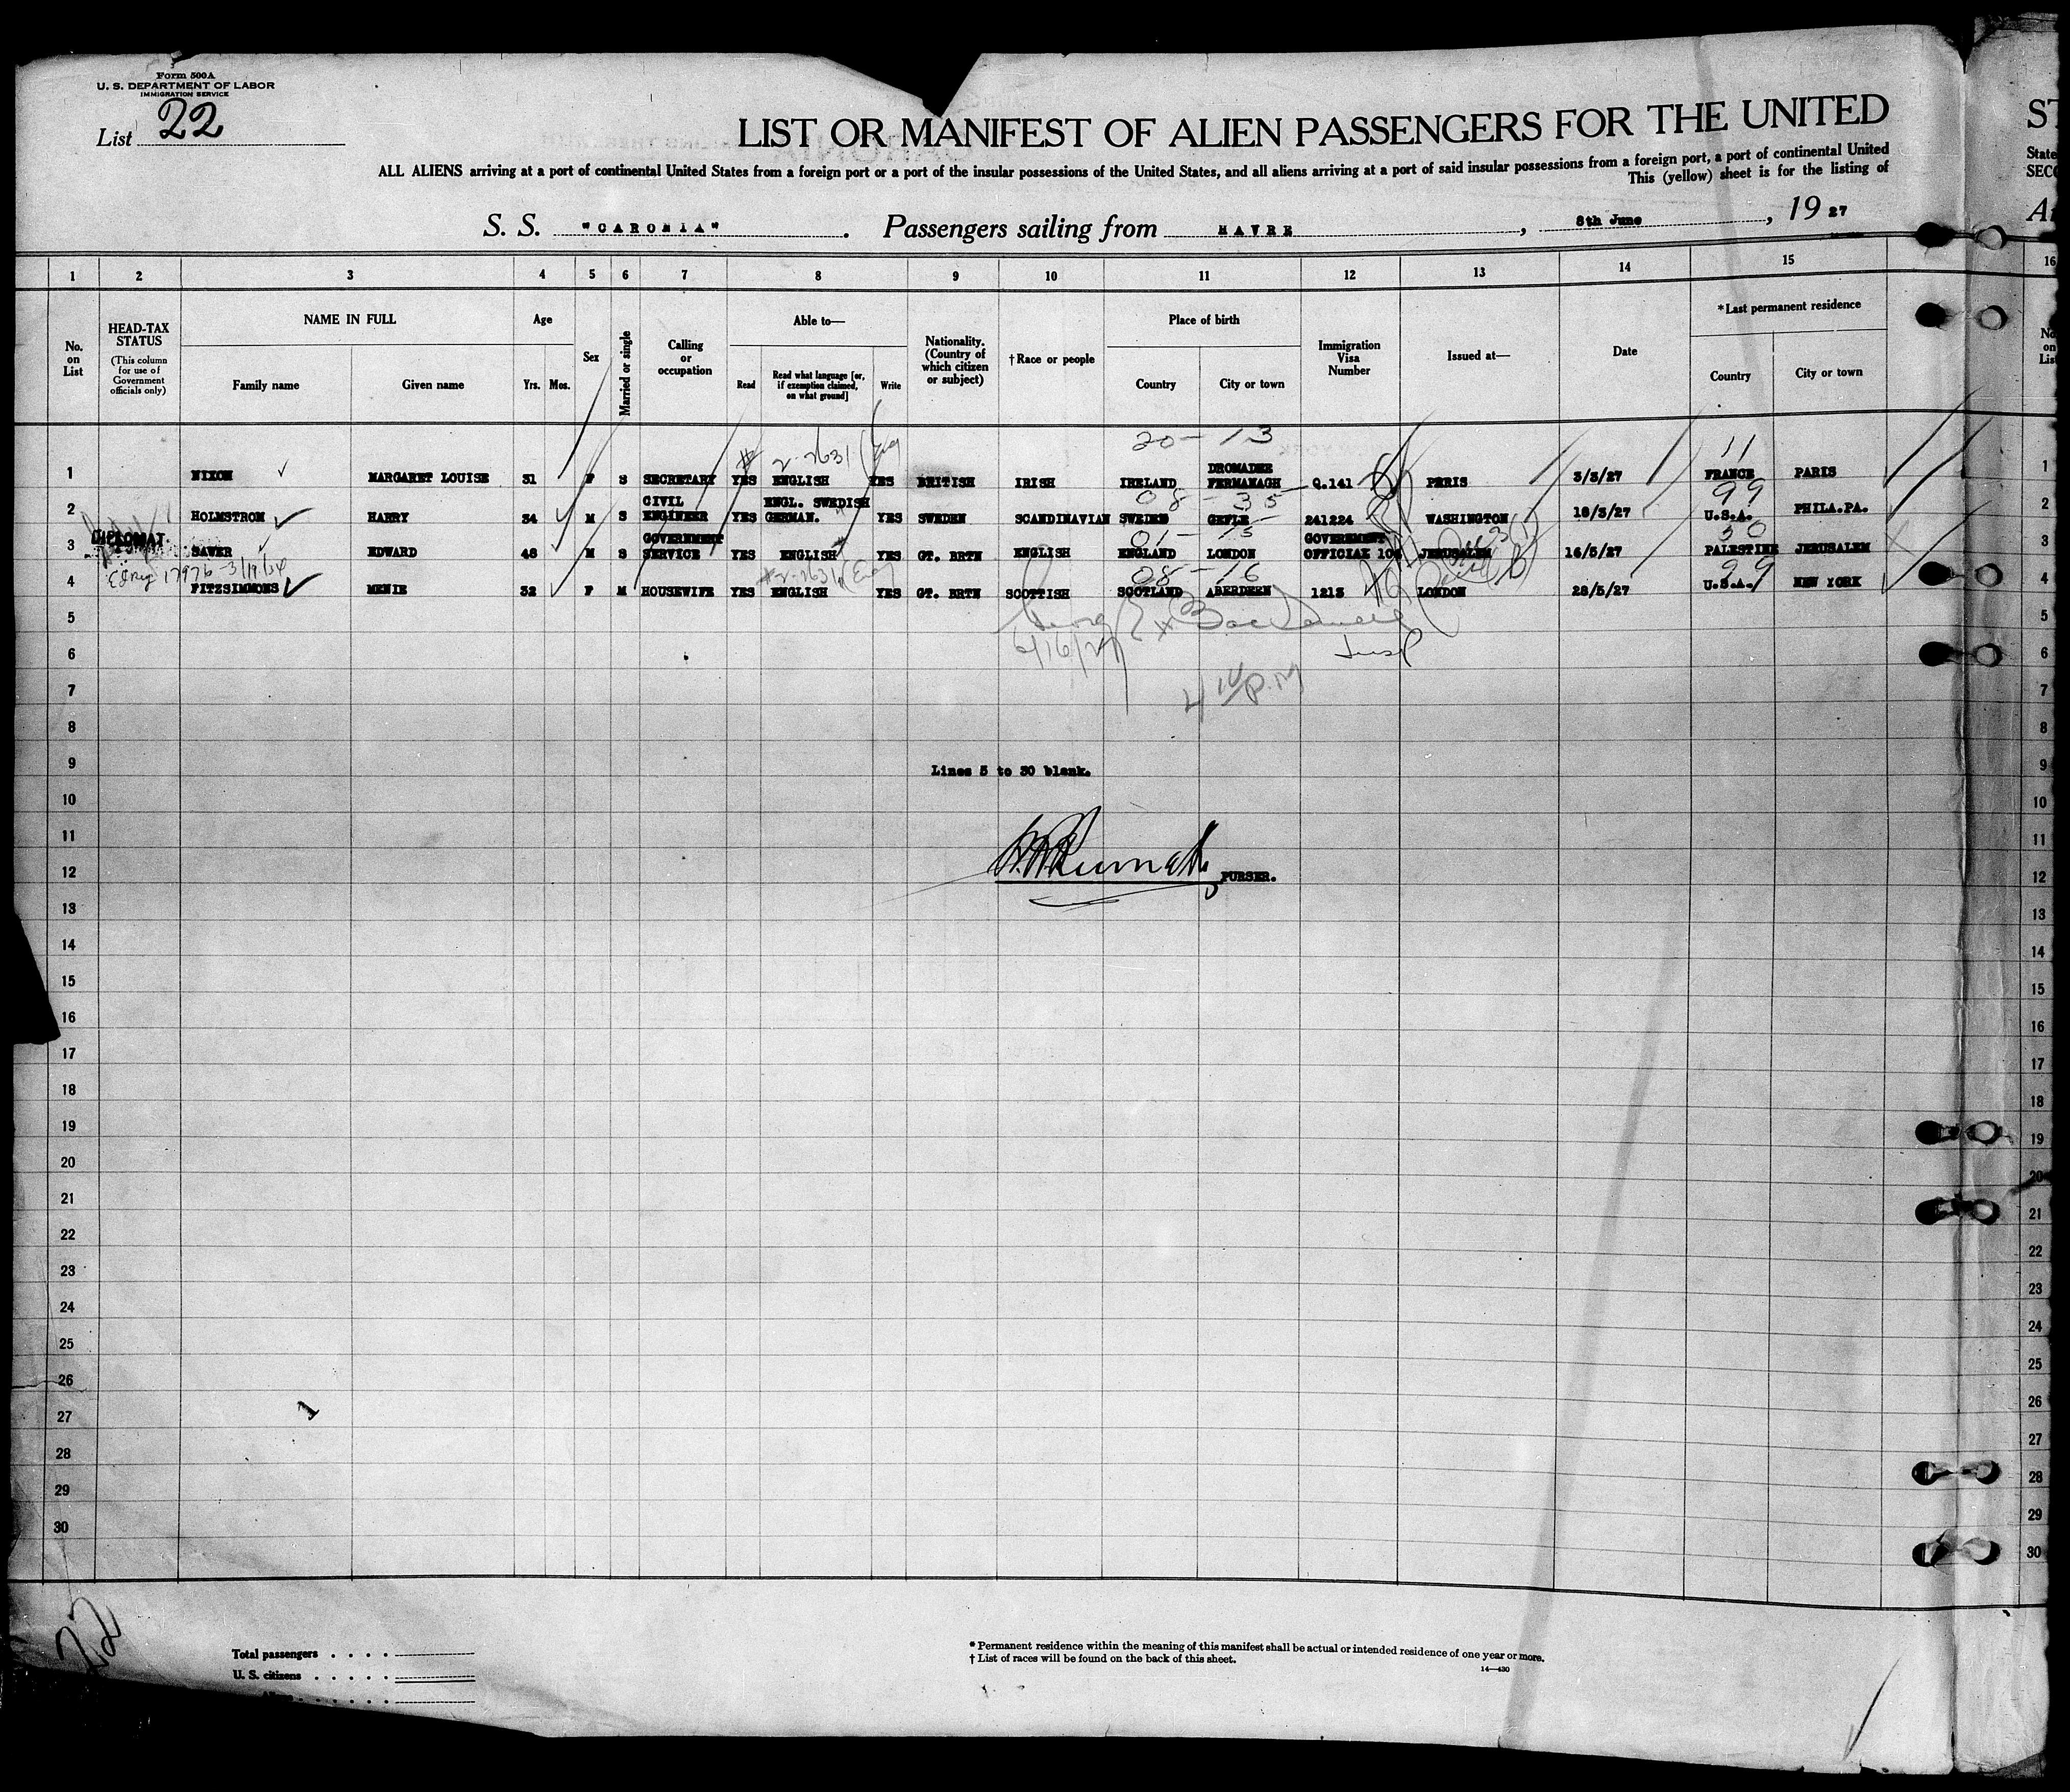 Form 500A
U. S. DEPARTMENT OF LABOR
IMMIGRATION SERVICE
List 22
LIST OR MANIFEST OF ALIEN PASSENGERS FOR THE UNITED ST
ALL ALIENS arriving at a port of continental United States from a foreign port or a port of the insular possessions of the United States, and all aliens arriving at a port of said insular possessions from a foreign port, a port of continental United State
This (yellow) sheet is for the listing of SECO
S. S. "CARONIA". Passengers sailing from HAVRE, 8th June, 1927
1 2 3 4 5 6 7 8 9 10 11 12 13 14 15 16
No. on List
HEAD-TAX STATUS
(This column for use of Government officials only)
NAME IN FULL
Family name
Given name
Age
Yrs. Mos.
Sex
Married or single
Calling or occupation
Able to—
Read
Read what language [or, if exemption claimed, on what ground]
Write
Nationality. (Country of which citizen or subject)
†Race or people
Place of birth
Country
City or town
Immigration Visa Number
Issued at—
Date
*Last permanent residence
Country
City or town
No. on List
20-13 11
1 NIXON MARGARET LOUISE 31 F S SECRETARY YES ENGLISH YES BRITISH IRISH IRELAND DROMADEE FERMANAGH Q.141 PERIS 3/3/27 FRANCE PARIS 1
08-35 99
2 HOLMSTROM HARRY 34 M S CIVIL ENGINEER YES ENGL. SWEDISH GERMAN. YES SWEDEN SCANDINAVIAN SWEDEN GEFLE 241224 WASHINGTON 18/3/27 U.S.A. PHILA.PA. 2
DIPLOMAT.
01-15 30
3 SAWER EDWARD 48 M S GOVERNMENT SERVICE YES ENGLISH YES GT. BRTN ENGLISH ENGLAND LONDON GOVERNMENT OFFICIAL 106 JERUSALEM 16/5/27 PALESTINE JERUSALEM 3
08-16 99
4 FITZSIMMONS MENIE 32 F M HOUSEWIFE YES ENGLISH YES GT. BRTN SCOTTISH SCOTLAND ABERDEEN 1213 LONDON 28/5/27 U.S.A. NEW YORK 4
5 5
6 6/16/27 Insp 6
7 4 10 P.M 7
8 8
9 Lines 5 to 30 blank. 9
10 10
11 11
12 PURSER. 12
13 13
14 14
15 15
16 16
17 17
18 18
19 19
20 20
21 21
22 22
23 23
24 24
25 25
26 26
27 27
28 28
29 29
30 30
22
Total passengers
U. S. citizens
* Permanent residence within the meaning of this manifest shall be actual or intended residence of one year or more.
† List of races will be found on the back of this sheet.
14—430